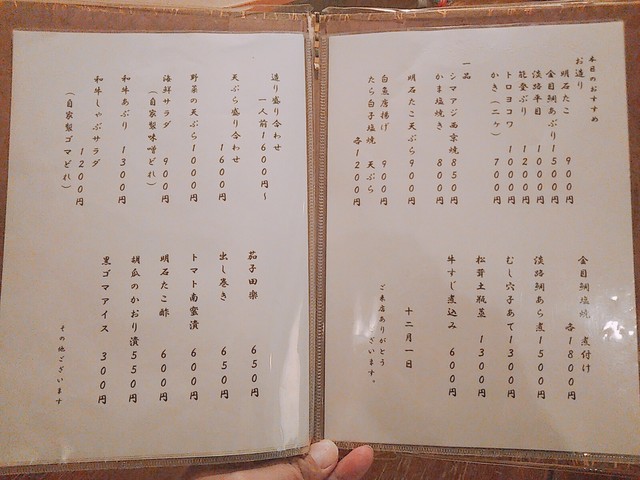 本日のおすすめ
お造り
明石たこ 900円
金目鯛あぶり 1500円
淡路平目 1000円
能登ぶり 1200円
トロヨコワ 1000円
かき(二ケ) 700円
一品
シマアジ西京焼 850円
かま塩焼き 800円
明石たこ天ぷら 900円
白魚唐揚げ 900円
たら白子塩焼 天ぷら
各1200円
金目鯛塩焼 煮付け
各1800円
淡路鯛あら煮 1500円
むし穴子あて 1300円
松茸土瓶蒸 1300円
牛すじ煮込み 600円
十二月一日
ご来店ありがとう
ございます。
造り盛り合わせ
一人前1600円~
天ぷら盛り合わせ
1600円
野菜の天ぷら 1000円
海鮮サラダ 900円
(自家製味噌どれ)
和牛あぶり 1300円
和牛しゃぶサラダ
1200円
(自家製ゴマどれ)
茄子田楽 650円
出し巻き 650円
トマト南蛮漬 600円
明石たこ酢 600円
胡瓜のかおり漬 550円
黒ゴマアイス 300円
その他ございます